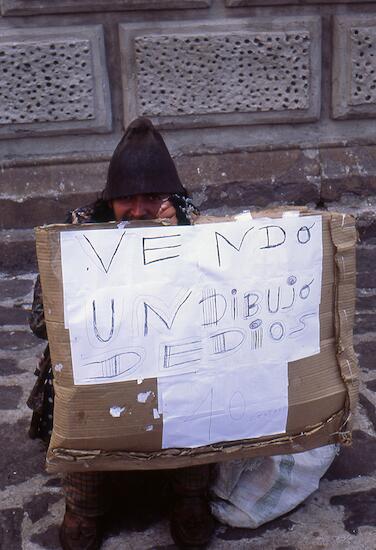 VENDO
UN DIBUJO
DE DIOS
10......